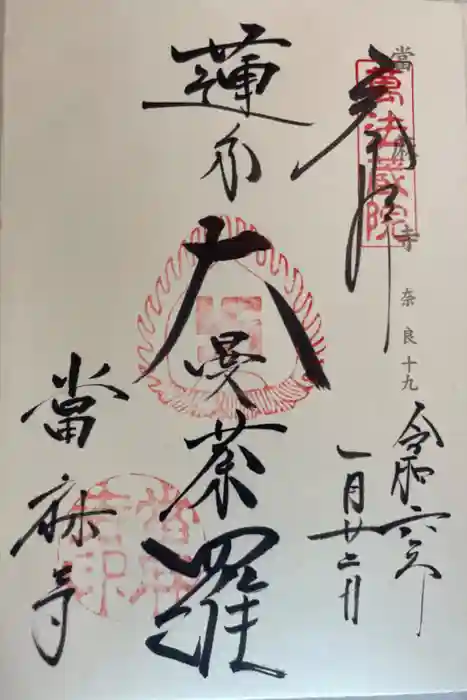 奉拝
當麻寺 奈良十九
萬法蔵院
令和六年
一月廿二日
蓮糸大曼荼羅
當麻寺